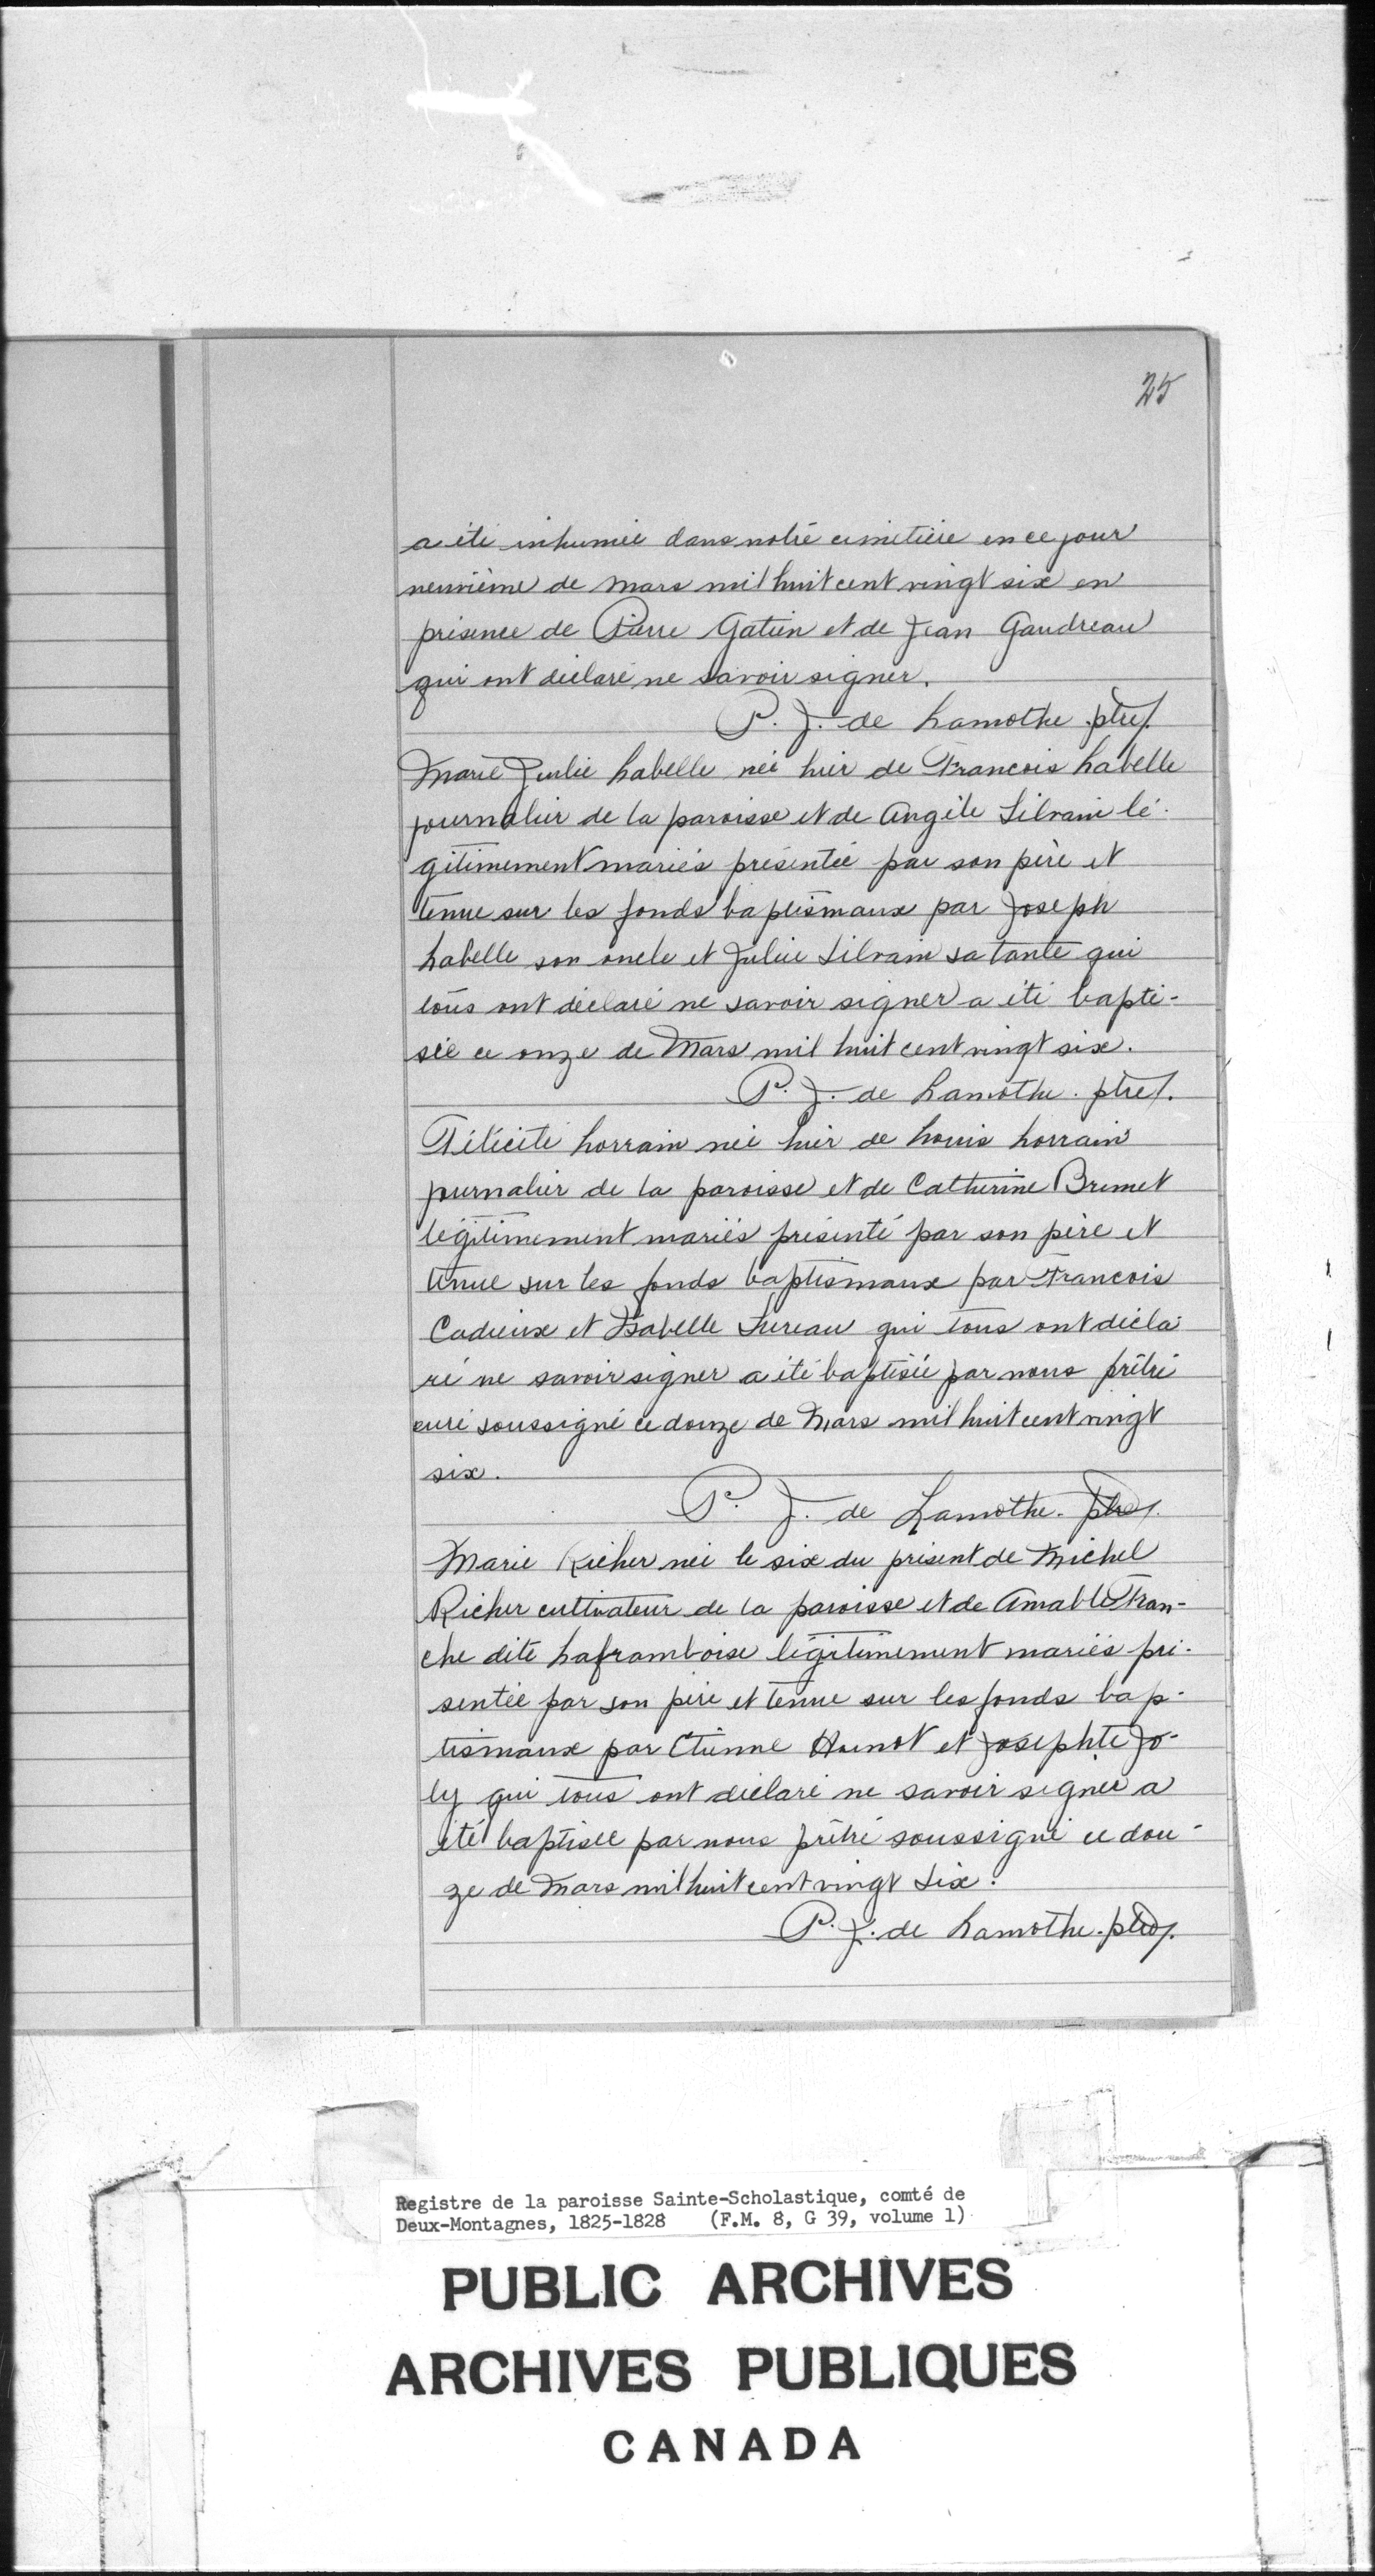 25
a été inhumée dans notre cimetière en ce jour
neuvième de Mars mil huit cent vingt six en
présence de Pierre Gatien et de Jean Gaudreau
qui ont déclaré ne savoir signer.
P. J. de Lamothe. ptre/.
Marie Julie Labelle née hier de Francois Labelle
journalier de la paroisse et de Angèle Silvain lé-
gitimement mariés présentée par son père et
tenue sur les fonds baptismaux par Joseph
Labelle son oncle et Julie Silvain sa tante qui
tous ont déclaré ne savoir signer a été bapti-
sée ce onze de Mars mil huit cent vingt six.
P. J. de Lamothe. ptre/.
Félicité Lorrain née hier de Louis Lorrain
journalier de la paroisse et de Catherine Brunet
légitimement mariés présenté par son père et
tenue sur les fonds baptismaux par Francois
Cadieux et Isabelle Sureau qui tous ont décla-
ré ne savoir signer a été baptisée par nous prêtre
curé soussigné ce douze de Mars mil huit cent vingt
six.
P. J. de Lamothe. ptre/.
Marie Richer née le six du présent de Michel
Richer cultivateur de la paroisse et de Amable Fran-
che dite Laframboise légitimement mariés pré-
sentée par son père et tenue sur les fonds bap-
tismaux par Etienne et Josephte Jo-
ly qui tous ont déclaré ne savoir signer a
été baptisée par nous prêtre soussigné ce dou-
ze de Mars mil huit cent vingt six.
P. J. de Lamothe. ptre/.
Registre de la paroisse Sainte-Scholastique, comté de
Deux-Montagnes, 1825-1828 (F.M. 8, G 39, volume 1)
PUBLIC ARCHIVES
ARCHIVES PUBLIQUES
CANADA